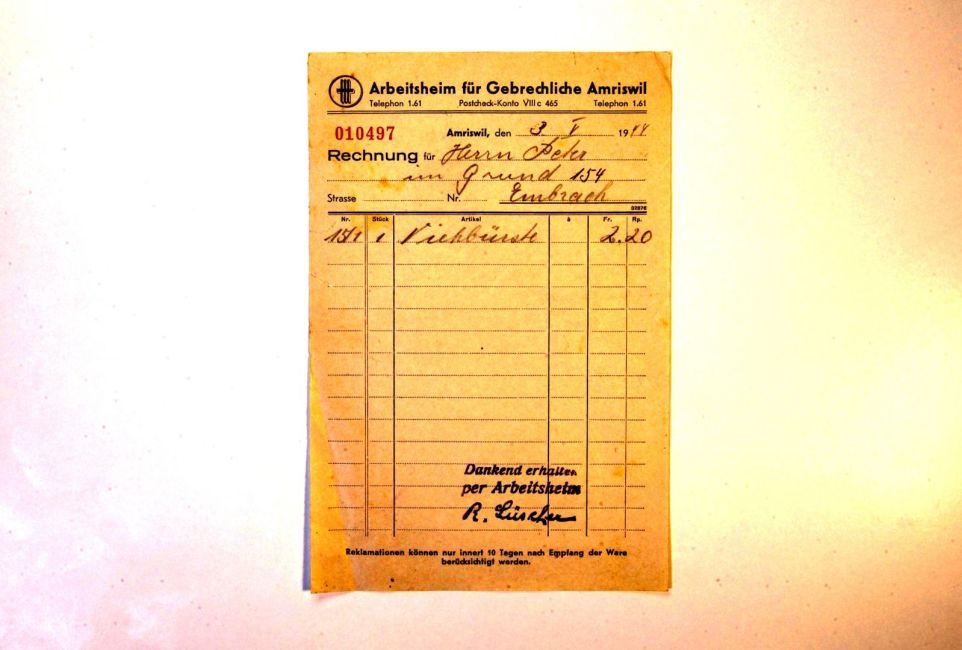 Arbeitsheim für Gebrechliche Amriswil
Telephon 1.61 Postcheck-Konto VIII c 465 Telephon 1.61
010497
Amriswil, den 3 V 1944
Rechnung für Herrn Peter
im Grund 154
Strasse Nr. Embrach
Nr. Stück Artikel à Fr. Rp.
1 Viehbürste 2.20
Dankend erhalten
per Arbeitsheim
R. Lüscher
Reklamationen können nur innert 10 Tagen nach Empfang der Ware
berücksichtigt werden.